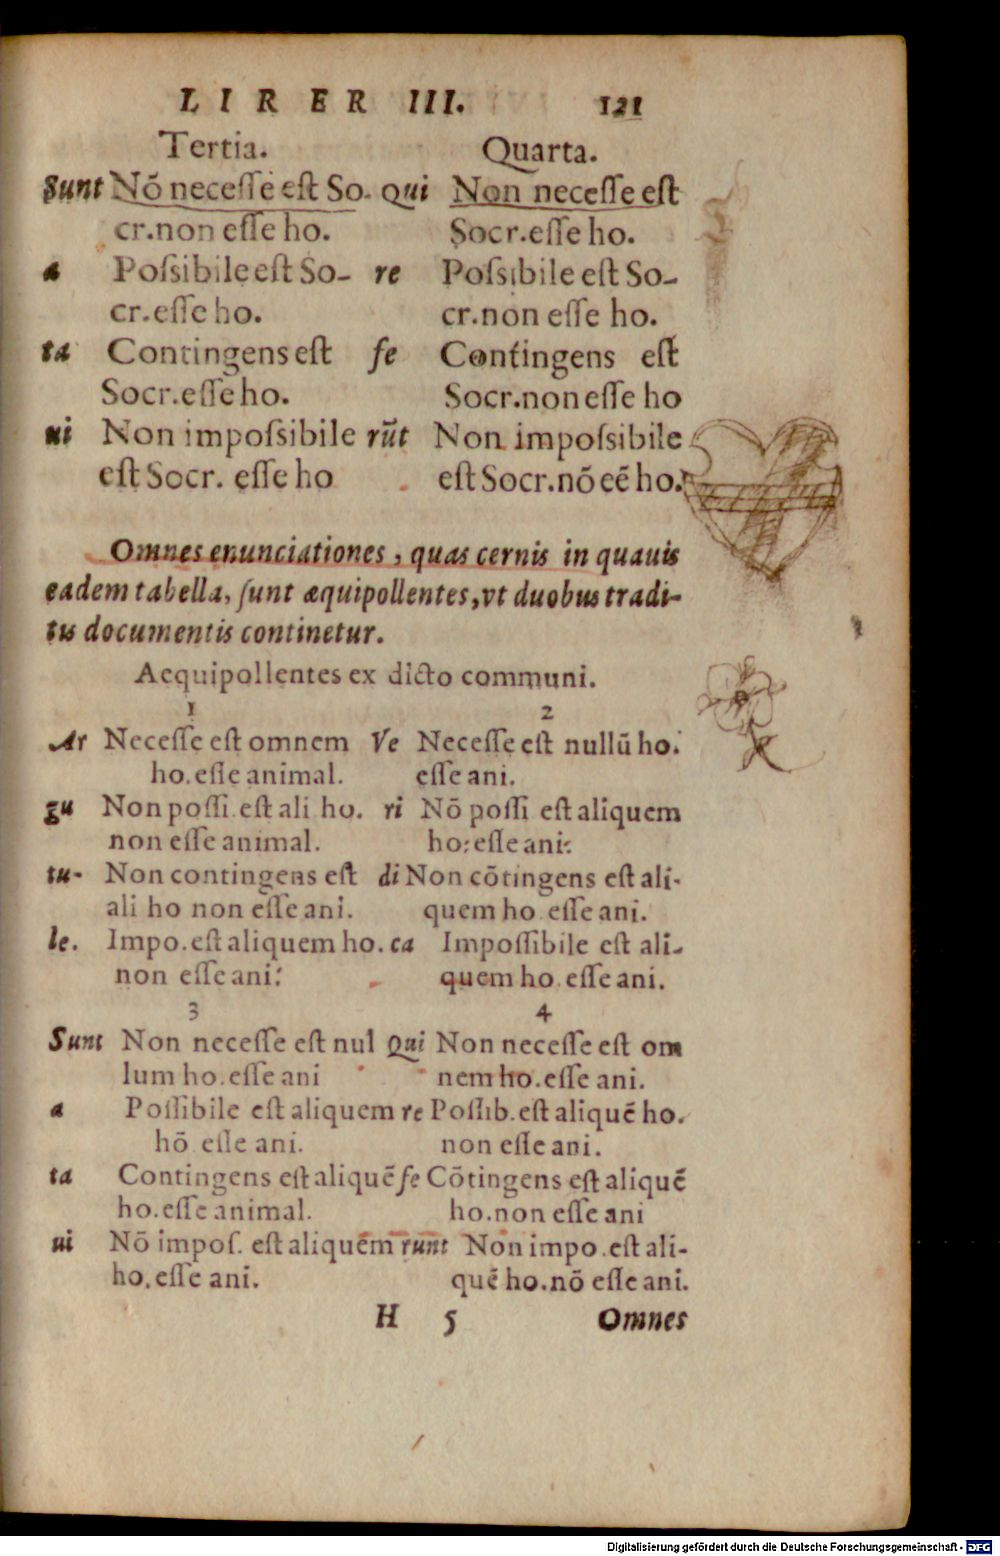 LIRER III. 121
Tertia. Quarta.
Sunt Nō necesse est So- Qui Non necesse est
cr.non esse ho. Socr.esse ho.
a Possibile est So- re Possibile est So-
cr.esse ho. cr.non esse ho.
ta Contingens est fe Contingens est
Socr.esse ho. Socr.non esse ho
ui Non impossibile rūt Non impossibile
est Socr. esse ho est Socr.nō eē ho.
Omnes enunciationes, quas cernis in quauis
eadem tabella, sunt æquipollentes, vt duobus tradi-
tis documentis continetur.
Aequipollentes ex dicto communi.
1 2
Ar Necesse est omnem Ve Necesse est nullū ho.
ho.esse animal. esse ani.
gu Non possi.est ali ho. ri Nō possi est aliquem
non esse animal. ho:esse ani:
tu- Non contingens est di Non cōtingens est ali-
ali ho non esse ani. quem ho esse ani.
le. Impo.est aliquem ho. ca Impossibile est ali-
non esse ani: quem ho.esse ani.
3 4
Sunt Non necesse est nul Qui Non necesse est om
lum ho.esse ani nem ho.esse ani.
a Possibile est aliquem re Possib.est aliquē ho.
hō esse ani. non esse ani.
ta Contingens est aliquē fe Cōtingens est aliquē
ho.esse animal. ho.non esse ani
ui Nō impos. est aliquem runt Non impo.est ali-
ho.esse ani. quē ho.nō esse ani.
H 5 Omnes
Digitalisierung gefördert durch die Deutsche Forschungsgemeinschaft - DFG